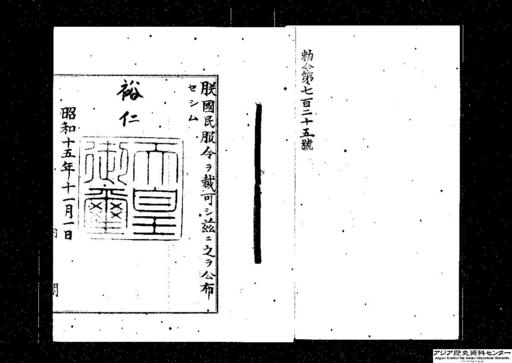 勅令第七百二十五號
朕國民服令ヲ裁可シ茲ニ之ヲ公布
セシム
裕仁
天皇
御璽
昭和十五年十一月一日
内閣
アジア歴史資料センター
Japan Center for Asian Historical Records